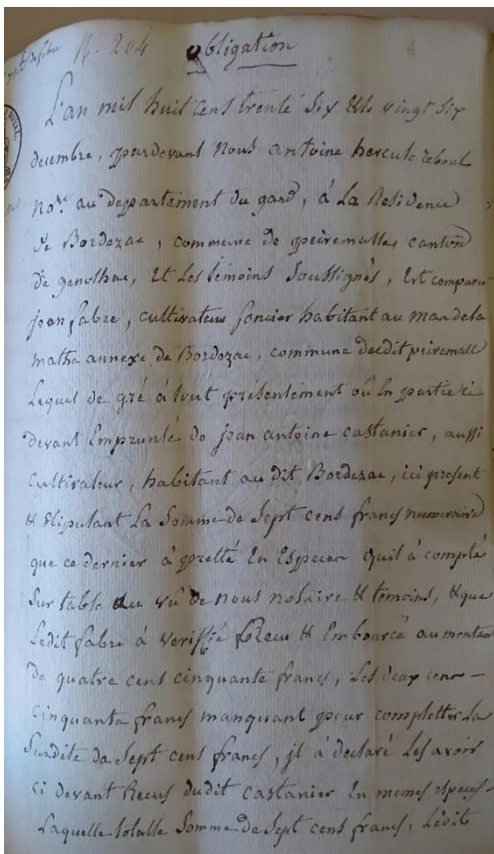 N.° 204 obligation
L'an mil huit cens trente six & le vingt six
decembre, pardevant Nous antoine hercule reboul
No.re au departement du gard, á La Residence
de Bordezac, commune de peiremalle, canton
de genolhac, Et Les temoins Soussignés, Est comparu
jean fabre, cultivateur foncier habitant au mas de la
mathe annexe de Bordezac, commune dudit peiremalle
Lequel de gré á Reçu présentement où En partie ci
devant Emprunté de jean antoine castanier, aussi
cultivateur, habitant au dit Bordezac, ici present
& stipulant La Somme de Sept cens francs numeraire
que ce dernier á pretté En Especes quil á compté
Sur table au vû de nous notaire & temoins, & que
Ledit fabre á verifié Recu & Emboursé au montant
de quatre cens cinquante francs, Les deux cens
cinquante francs manquant pour completter La
Susdite de Sept cens francs, il á declaré Les avoir
ci devant Recus dudit castanier En memes especes
Laquelle totalle Somme de Sept cens francs, Ledit